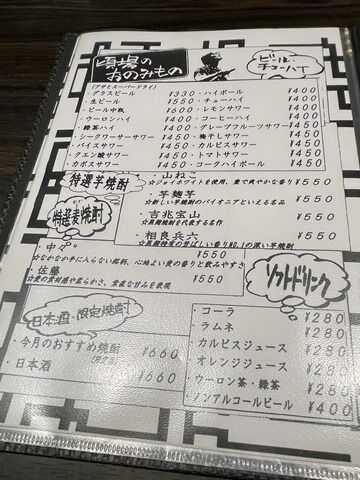 頃場の
おのみもの
ビール
チューハイ
(アサヒスーパードライ)
・グラスビール ¥330
・生ビール ¥550
・ビール中瓶 ¥600
・ウーロンハイ ¥400
・緑茶ハイ ¥400
・シークワーサーサワー ¥450
・バイスサワー ¥450
・クエン酸サワー ¥450
・カボスサワー ¥450
・ハイボール ¥400
・チューハイ ¥400
・レモンサワー ¥400
・コーヒーハイ ¥400
・グレープフルーツサワー ¥450
・梅干しサワー ¥450
・カルピスサワー ¥450
・トマトサワー ¥450
・コークハイボール ¥450
特選芋焼酎
・山ねこ ¥550
☆ジョイホワイトを使用、豊で爽やかな香り
・芋麹芋 ¥550
☆新しい芋焼酎のパイオニアといえる名品
・吉兆宝山 ¥550
☆黒麹焼酎を代表する名作
・相良兵六 ¥550
☆黒麹特有の芳ばしい香りNO.1の濃い芋焼酎
特選麦焼酎
・中々 ¥550
☆なかなか手に入らない銘柄、心地よい麦の香りと飲みやすさ
・佐藤 ¥550
☆麦の素材感や柔らかさ、素直な甘みを表現
ソフトドリンク
・コーラ ¥280
・ラムネ ¥280
・カルピスジュース ¥280
・オレンジジュース ¥280
・ウーロン茶・緑茶 ¥280
・ノンアルコールビール ¥400
日本酒・限定焼酎
・今月のおすすめ焼酎 ¥660
・日本酒 ¥660